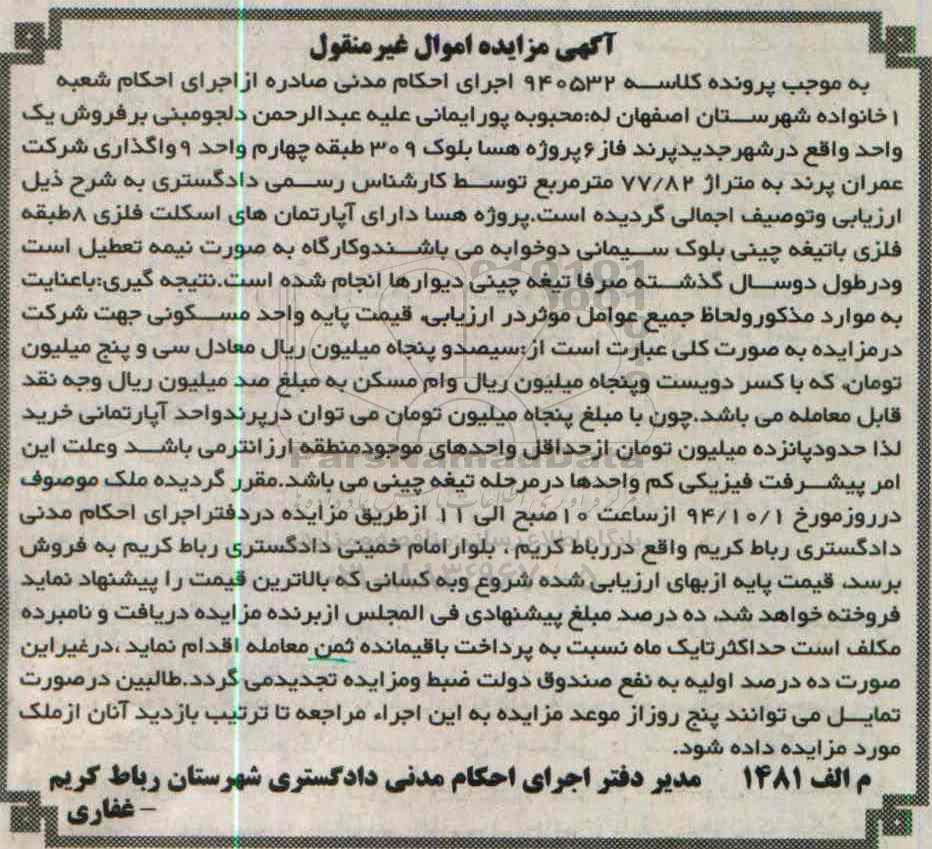 آگهی مزایده اموال غیرمنقول
به موجب پرونده کلاسه ۹۴۰۵۳۲ اجرای احکام مدنی صادره ازاجرای احکام شعبه
۱خانواده شهرستان اصفهان له:محبوبه پورایمانی علیه عبدالرحمن دلجومبنی برفروش یک
واحد واقع درشهرجدیدپرند فاز۶پروژه هسا بلوک ۳۰۹ طبقه چهارم واحد ۹واگذاری شرکت
عمران پرند به متراژ ۷۷/۸۲ مترمربع توسط کارشناس رسمی دادگستری به شرح ذیل
ارزیابی وتوصیف اجمالی گردیده است.پروژه هسا دارای آپارتمان های اسکلت فلزی ۸طبقه
فلزی باتیغه چینی بلوک سیمانی دوخوابه می باشندوکارگاه به صورت نیمه تعطیل است
ودرطول دوسال گذشته صرفا تیغه چینی دیوارها انجام شده است.نتیجه گیری:باعنایت
به موارد مذکورولحاظ جمیع عوامل موثردر ارزیابی، قیمت پایه واحد مسکونی جهت شرکت
درمزایده به صورت کلی عبارت است از:سیصدو پنجاه میلیون ریال معادل سی و پنج میلیون
تومان، که با کسر دویست وپنجاه میلیون ریال وام مسکن به مبلغ صد میلیون ریال وجه نقد
قابل معامله می باشد.چون با مبلغ پنجاه میلیون تومان می توان درپرندواحد آپارتمانی خرید
لذا حدودپانزده میلیون تومان ازحداقل واحدهای موجودمنطقه ارزانترمی باشد وعلت این
امر پیشرفت فیزیکی کم واحدها درمرحله تیغه چینی می باشد.مقرر گردیده ملک موصوف
درروزمورخ ۹۴/۱۰/۱ ازساعت ۱۰صبح الی ۱۱ ازطریق مزایده دردفتراجرای احکام مدنی
دادگستری رباط کریم واقع دررباط کریم ، بلوارامام خمینی دادگستری رباط کریم به فروش
برسد، قیمت پایه ازبهای ارزیابی شده شروع وبه کسانی که بالاترین قیمت را پیشنهاد نماید
فروخته خواهد شد، ده درصد مبلغ پیشنهادی فی المجلس ازبرنده مزایده دریافت و نامبرده
مکلف است حداکثرتایک ماه نسبت به پرداخت باقیمانده ثمن معامله اقدام نماید ،درغیراین
صورت ده درصد اولیه به نفع صندوق دولت ضبط ومزایده تجدیدمی گردد.طالبین درصورت
تمایل می توانند پنج روزاز موعد مزایده به این اجراء مراجعه تا ترتیب بازدید آنان ازملک
مورد مزایده داده شود.
م الف ۱۴۸۱ مدیر دفتر اجرای احکام مدنی دادگستری شهرستان رباط کریم
– غفاری
ParsNamadData